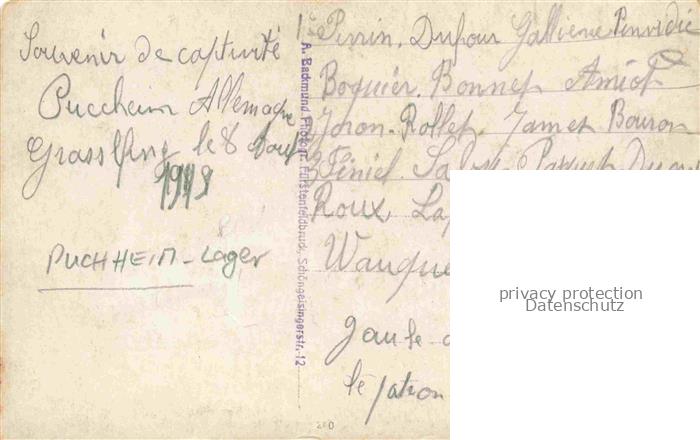 Souvenir de captivité
Puccheim Allemagne
Grasslfing le 8 Aout
1918
PUCHHEIM-Lager
A. Backmund Photogr. Fürstenfeldbruck, Schöngeisingerstr. 12
Perrin. Dufour Gallienne
Boquier. Bonnet Amiot
Joron. Rollet. Jamet Bouron
Finiel.
Roux.
Wauque
le patron
privacy protection
Datenschutz